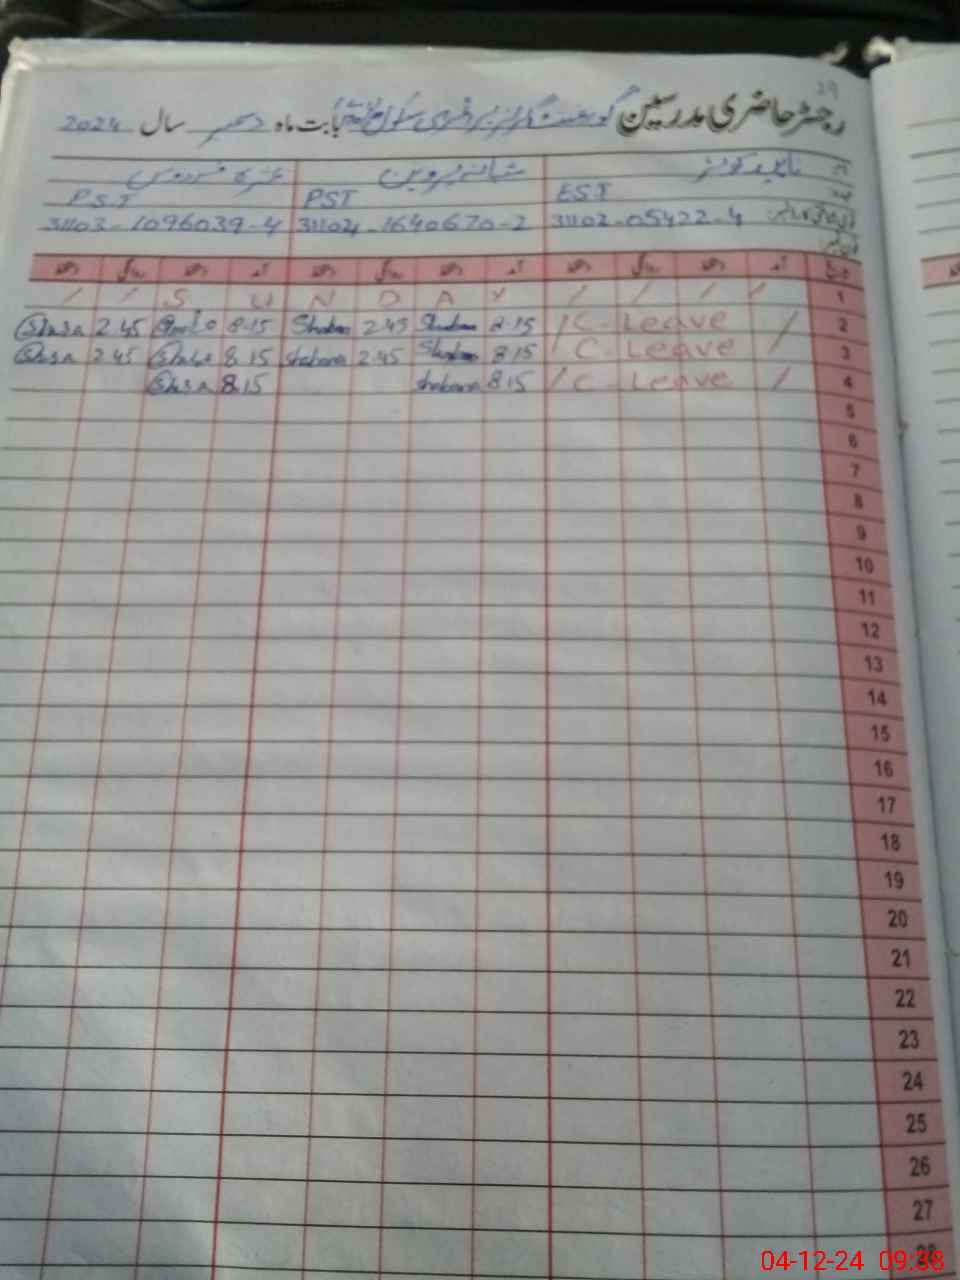 29
رجسٹر حاضری مدرسین گورنمنٹ گرلز پرائمری سکول بابت ماہ دسمبر سال 2024
نام شبانہ پروین
عہدہ EST PST PST
31102-05422-4 31104-1640670-2 31103-1096039-4
تاریخ آمد دستخط روانگی دستخط آمد دستخط روانگی دستخط آمد دستخط روانگی دستخط
1 / / / / Y A D N U S / /
2 / C-Leave / 8.15 Shabana 2.45 Shabana 8.15 2.45
3 / C-Leave / 8.15 Shabana 2.45 Shabana 8.15 2.45
4 / C-Leave / 8.15 Shabana 8.15
5
6
7
8
9
10
11
12
13
14
15
16
17
18
19
20
21
22
23
24
25
26
27
28
04-12-24 09:38